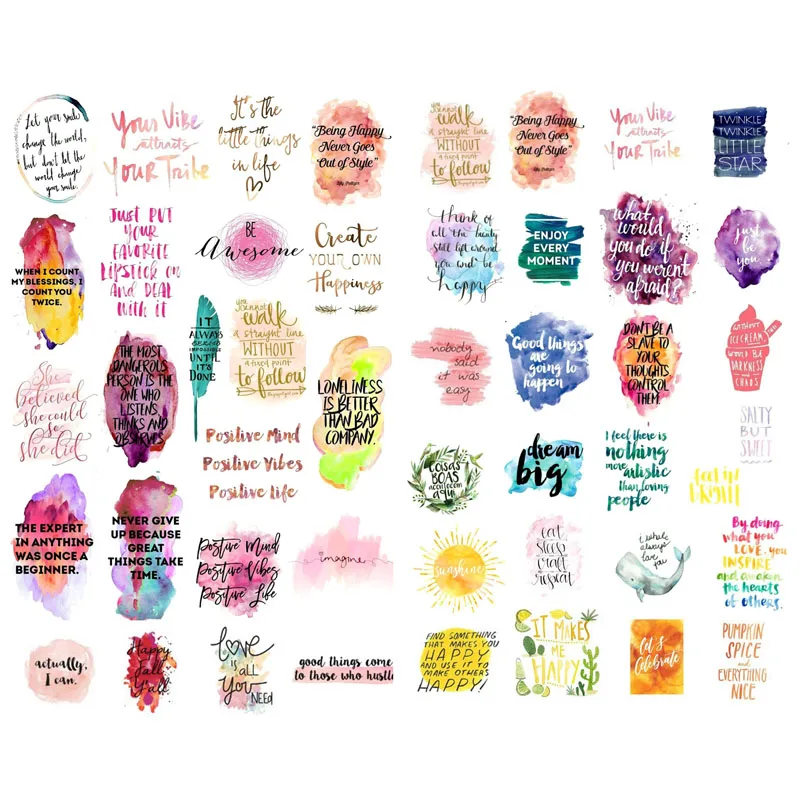 Let your smile
change the world,
but don't let the
world change
your smile.
Your Vibe
attracts
Your Tribe
It's the
little things
in life
"Being Happy
Never Goes
Out of Style"
you cannot
walk
a straight line
WITHOUT
a fixed point
to follow
"Being Happy
Never Goes
Out of Style"
Your Vibe
attracts
Your Tribe
TWINKLE
TWINKLE
LITTLE
STAR
WHEN I COUNT
MY BLESSINGS, I
COUNT YOU
TWICE.
JUST PUT
YOUR
FAVORITE
LIPSTICK ON
AND DEAL
WITH IT
BE
Awesome
Create
YOUR OWN
Happiness
think of
all the beauty
still left around
you and be
happy
ENJOY
EVERY
MOMENT
what
would
you do if
you weren't
afraid?
just
be
you
She
believed
she could
so
she did
THE MOST
DANGEROUS
PERSON IS THE
ONE WHO
LISTENS,
THINKS AND
OBSERVES.
IT
ALWAYS
SEEMS
IMPOSSIBLE
UNTIL
IT'S
DONE
you cannot
walk
a straight line
WITHOUT
a fixed point
to follow
LONELINESS
IS BETTER
THAN BAD
COMPANY.
Positive Mind
Positive Vibes
Positive Life
nobody
said
it was
easy
Good things
are
going to
happen
DON'T BE A
SLAVE TO
YOUR
THOUGHTS,
CONTROL
THEM.
WITHOUT
ICE CREAM,
WOULD BE
DARKNESS
AND
CHAOS
SALTY
BUT
SWEET
COISAS
BOAS
acontecem
aqui
dream
big
I feel there is
nothing
more artistic
than loving
people
THE EXPERT
IN ANYTHING
WAS ONCE A
BEGINNER.
NEVER GIVE
UP BECAUSE
GREAT
THINGS TAKE
TIME.
Positive Mind
Positive Vibes
Positive Life
imagine
sunshine
eat
sleep
craft
repeat
i whale
always
love you
By doing
what you
LOVE, you
INSPIRE
and awaken
the hearts
of others.
actually,
I can.
Happy
fall
Y'all
Love
is all
You
NEED
good things come
to those who hustle
FIND SOMETHING
THAT MAKES YOU
HAPPY
AND USE IT TO
MAKE OTHERS
HAPPY!
IT MAKES
ME
HAPPY
Let's
Celebrate
PUMPKIN
SPICE
and
EVERYTHING
NICE